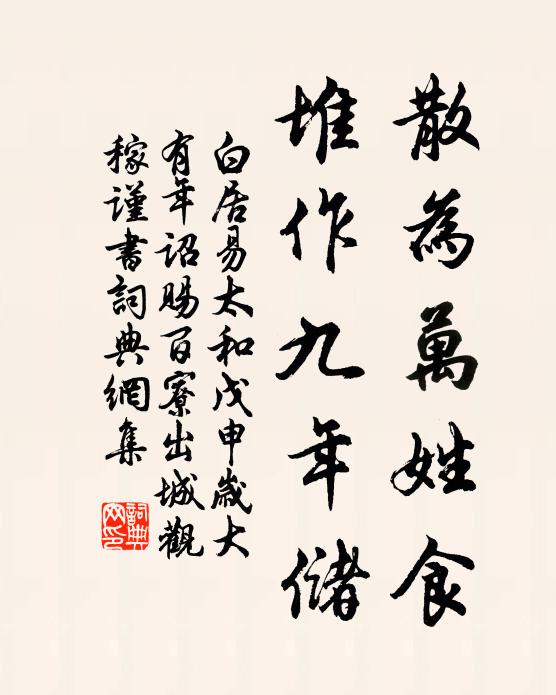 散為萬姓食
堆作九年儲
白居易太和戊申歲大
有年詔賜百寮出城觀
稼謹書詞典網集
詞典
网印